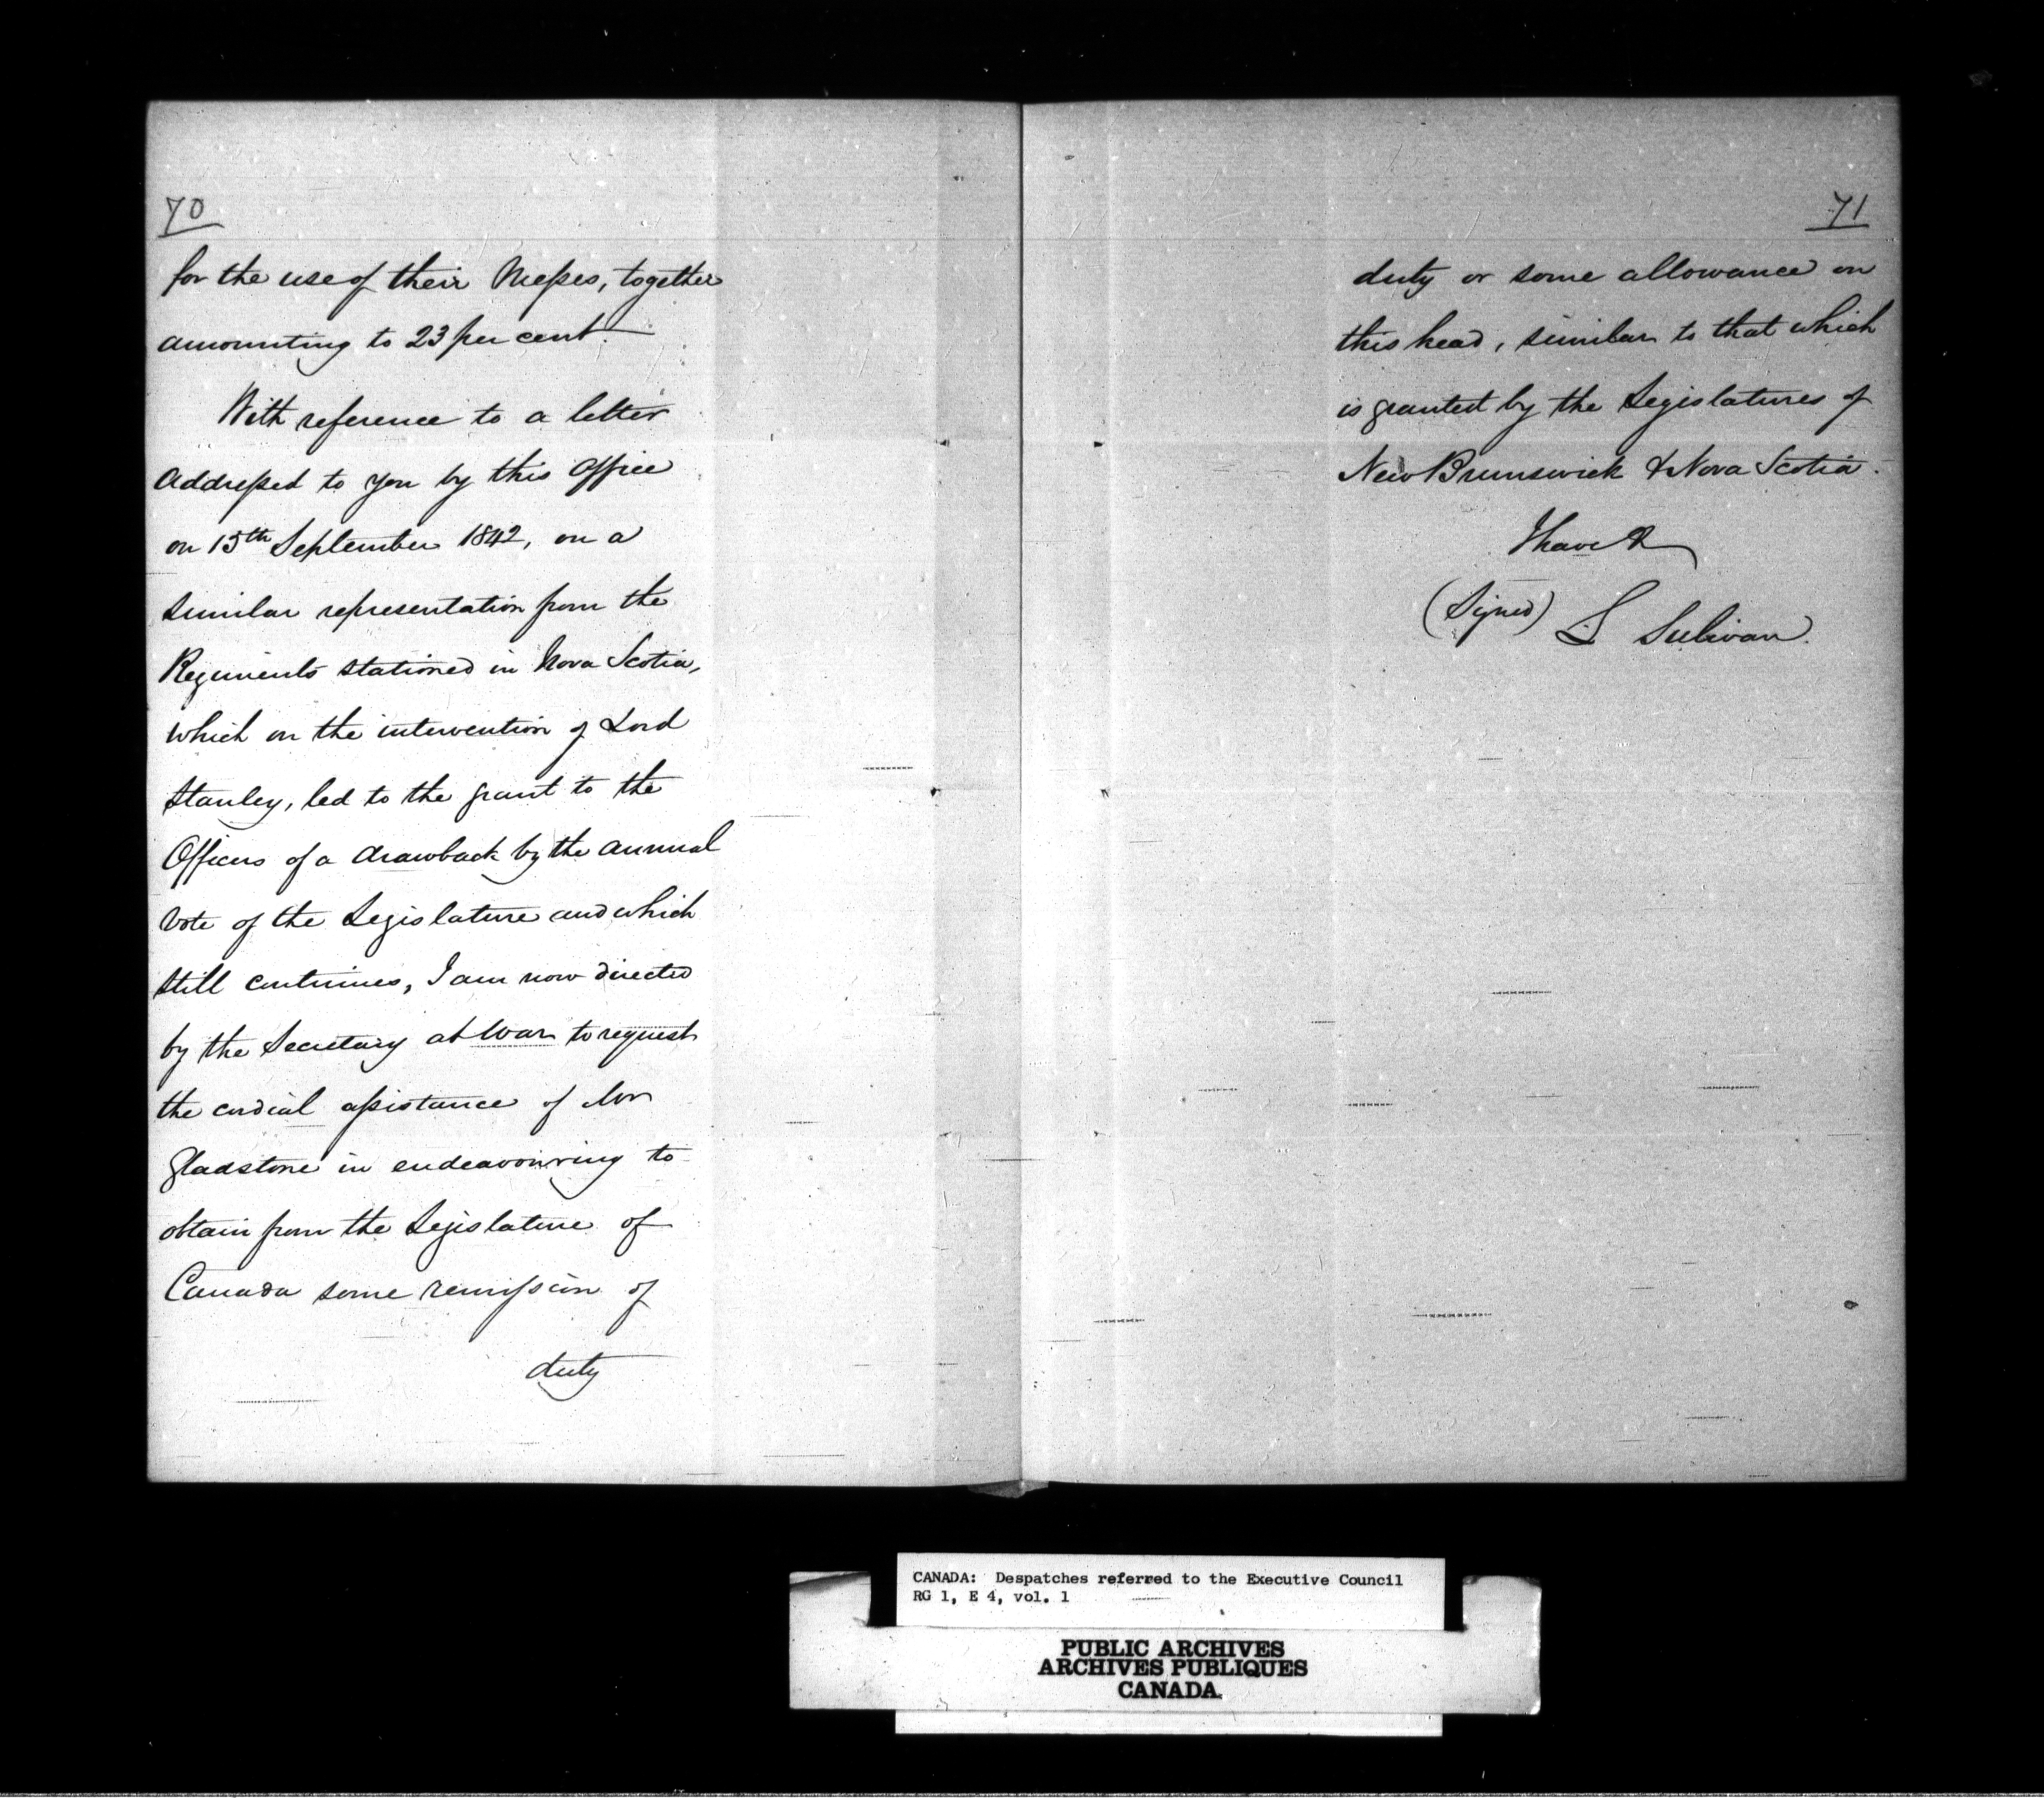 70
for the use of their Messes, together
amounting to 23 per cent.
With reference to a letter
addressed to you by this Office
on 15th September 1842, on a
similar representation from the
Regiments stationed in Nova Scotia,
which on the intervention of Lord
Stanley, led to the grant to the
Officers of a drawback by the annual
vote of the Legislature and which
still continues, I am now directed
by the Secretary at War to request
the cordial assistance of Mr
Gladstone in endeavouring to
obtain from the Legislature of
Canada some remission of
duty
71
duty or some allowance on
this head, similar to that which
is granted by the Legislatures of
New Brunswick & Nova Scotia.
I have &
(Signed) L Sulivan.
CANADA: Despatches referred to the Executive Council
RG 1, E 4, vol. 1
PUBLIC ARCHIVES
ARCHIVES PUBLIQUES
CANADA